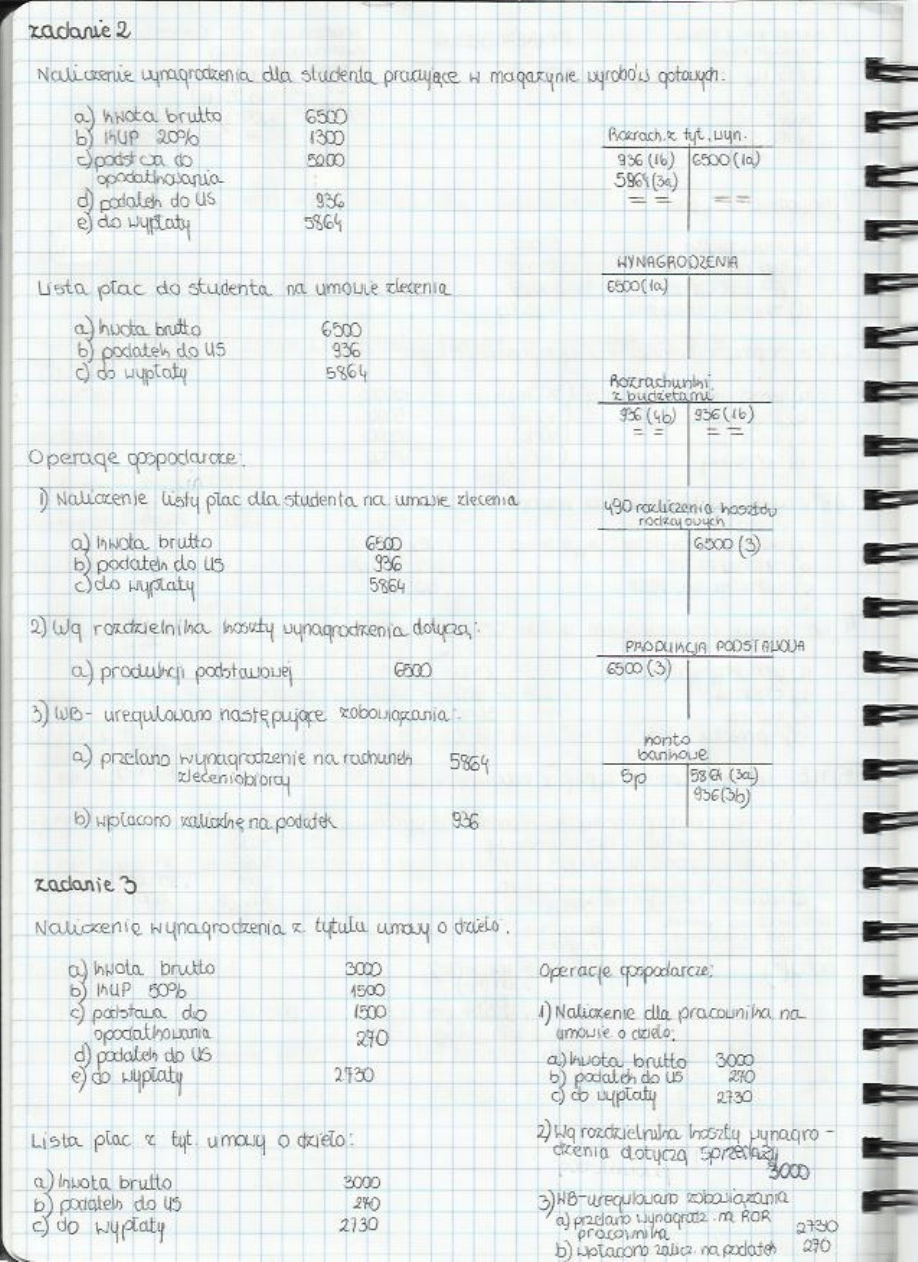 zadanie 2
Naliczenie wynagrodzenia dla studenta pracujące w magazynie wyrobów gotowych:
a) kwota brutto 6500
b) KUP 20% 1300
c) podst wa do 5200
opodatkowania
d) podatek do US 936
e) do wypłaty 5864
Lista płac do studenta na umowie zlecenia
a) kwota brutto 6500
b) podatek do US 936
c) do wypłaty 5864
Operacje gospodarcze:
1) Naliczenie listy płac dla studenta na umowie zlecenia
a) kwota brutto 6500
b) podatek do US 936
c) do wypłaty 5864
2) Wg rozdzielnika koszty wynagrodzenia dotyczą:
a) produkcji podstawowej 6500
3) WB - uregulowano następujące zobowiązania:
a) przelano wynagrodzenie na rachunek 5864
zleceniobiorcy
b) wpłacono zaliczkę na podatek 936
Rozrach. z tyt. wyn.
936 (1b) 6500 (1a)
5864 (3a)
= = = =
WYNAGRODZENIA
6500 (1a)
Rozrachunki
z budżetami
936 (4b) 936 (1b)
= = = =
490 rozliczenia kosztów
rodzajowych
6500 (3)
PRODUKCJA PODSTAWOWA
6500 (3)
konto
bankowe
Sp 5864 (3a)
936 (3b)
zadanie 3
Naliczenie wynagrodzenia z tytułu umowy o dzieło:
a) kwota brutto 3000
b) KUP 50% 1500
c) podstawa do 1500
opodatkowania 270
d) podatek do US
e) do wypłaty 2730
Lista płac z tyt. umowy o dzieło:
a) kwota brutto 3000
b) podatek do US 270
c) do wypłaty 2730
Operacje gospodarcze:
1) Naliczenie dla pracownika na
umowie o dzieło:
a) kwota brutto 3000
b) podatek do US 270
c) do wypłaty 2730
2) Wg rozdzielnika koszty wynagro-
dzenia dotyczą sprzedaży
3000
3) WB - uregulowano zobowiązania
a) przelano wynagrodz. na ROR 2730
pracownika
b) wpłacono zalicz. na podatek 270